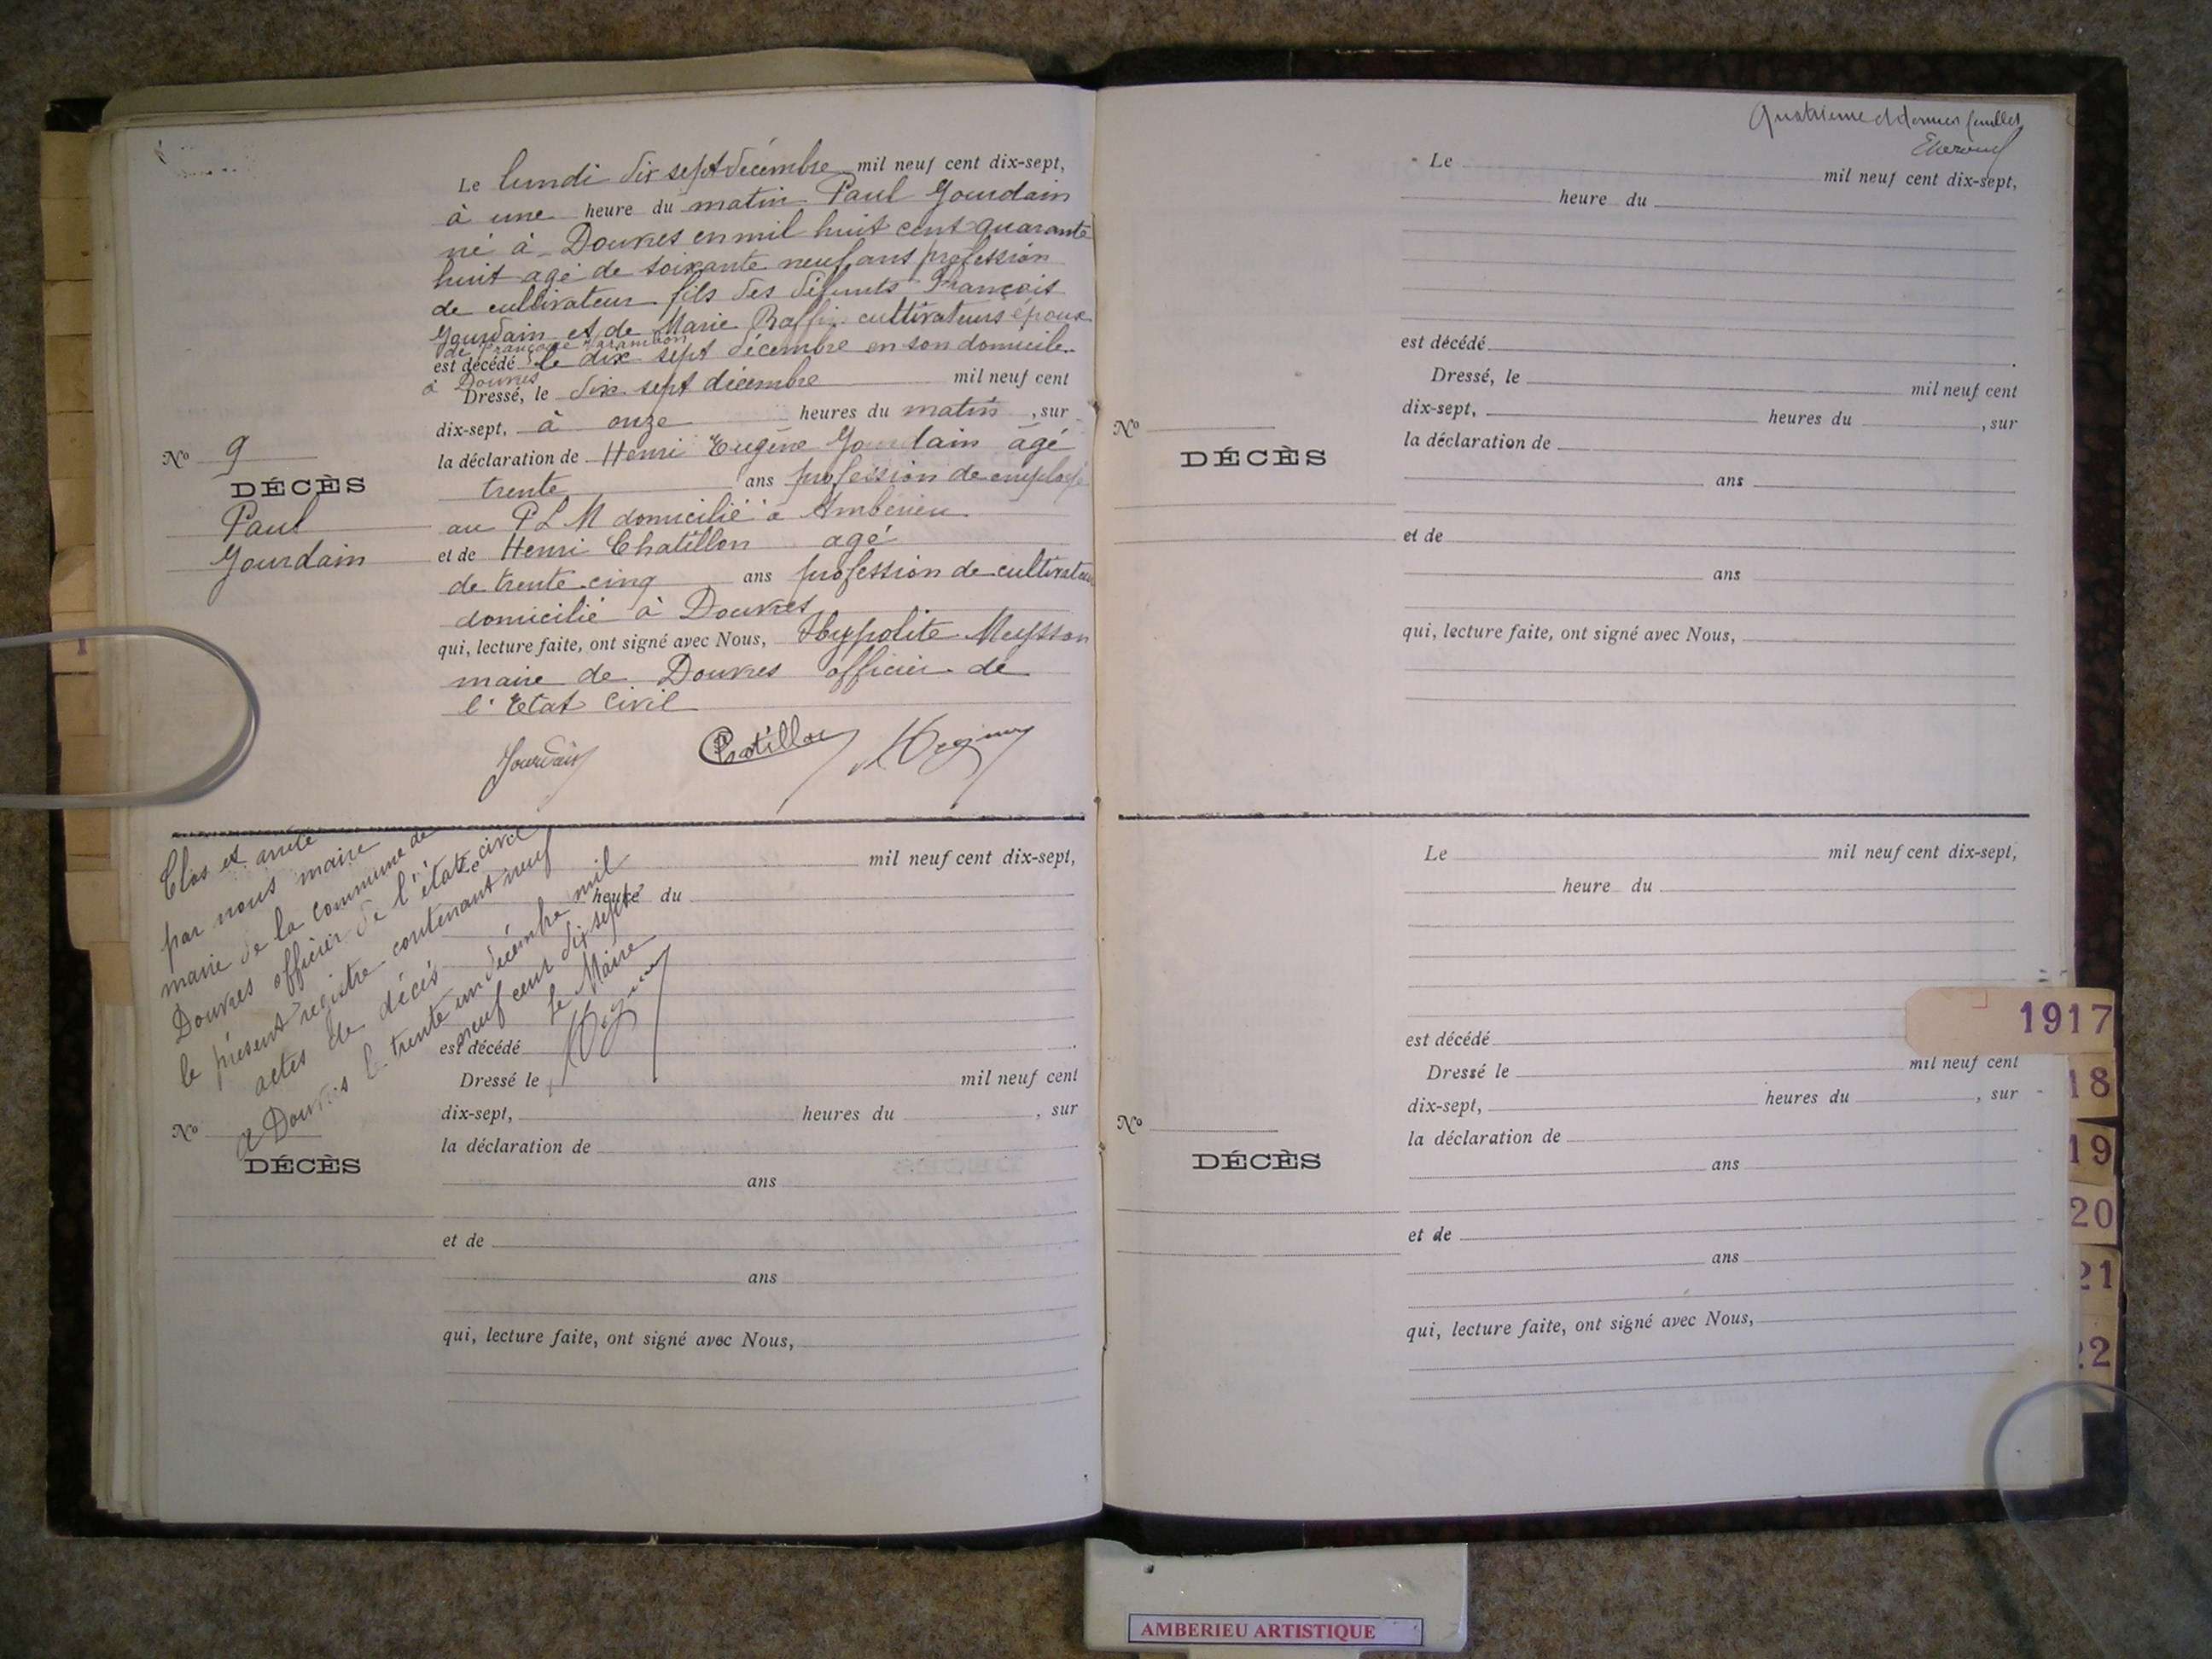 Le lundi dix sept décembre mil neuf cent dix-sept,
à une heure du matin Paul Gourdain
né à Douvres en mil huit cent quarante
huit agé de soixante neuf ans profession
de cultivateur fils des défunts François
Gourdain et de Marie Baffin cultivateurs époux
de Françoise Varambon
est décédé le dix sept décembre en son domicile
à Douvres
Dressé, le dix sept décembre mil neuf cent
dix-sept, à onze heures du matin, sur
la déclaration de Henri Eugène Gourdain âgé
trente ans profession de employé
au P L M domicilié à Ambérieu
et de Henri Chatillon agé
de trente cinq ans profession de cultivateur
domicilié à Douvres
qui, lecture faite, ont signé avec Nous, Hyppolite Meysson
maire de Douvres officier de
l'Etat Civil
Gourdain Chatillon
No 9
DÉCÈS
Paul
Gourdain
Clos et arrêté
par nous maire
maire de la commune de
Douvres officier de l'état civil
le présent registre contenant neuf
actes de décès
à Douvres le trente un décembre mil
neuf cent dix sept
le Maire
Le mil neuf cent dix-sept,
heure du
est décédé
Dressé le mil neuf cent
dix-sept, heures du , sur
la déclaration de
ans
et de
ans
qui, lecture faite, ont signé avec Nous,
No
DÉCÈS
Quatrième et dernier feuillet
Le mil neuf cent dix-sept,
heure du
est décédé
Dressé, le mil neuf cent
dix-sept, heures du , sur
la déclaration de
ans
et de
ans
qui, lecture faite, ont signé avec Nous,
No
DÉCÈS
Le mil neuf cent dix-sept,
heure du
est décédé
Dressé le mil neuf cent
dix-sept, heures du , sur
la déclaration de
ans
et de
ans
qui, lecture faite, ont signé avec Nous,
No
DÉCÈS
1917
18
19
20
21
22
AMBERIEU ARTISTIQUE